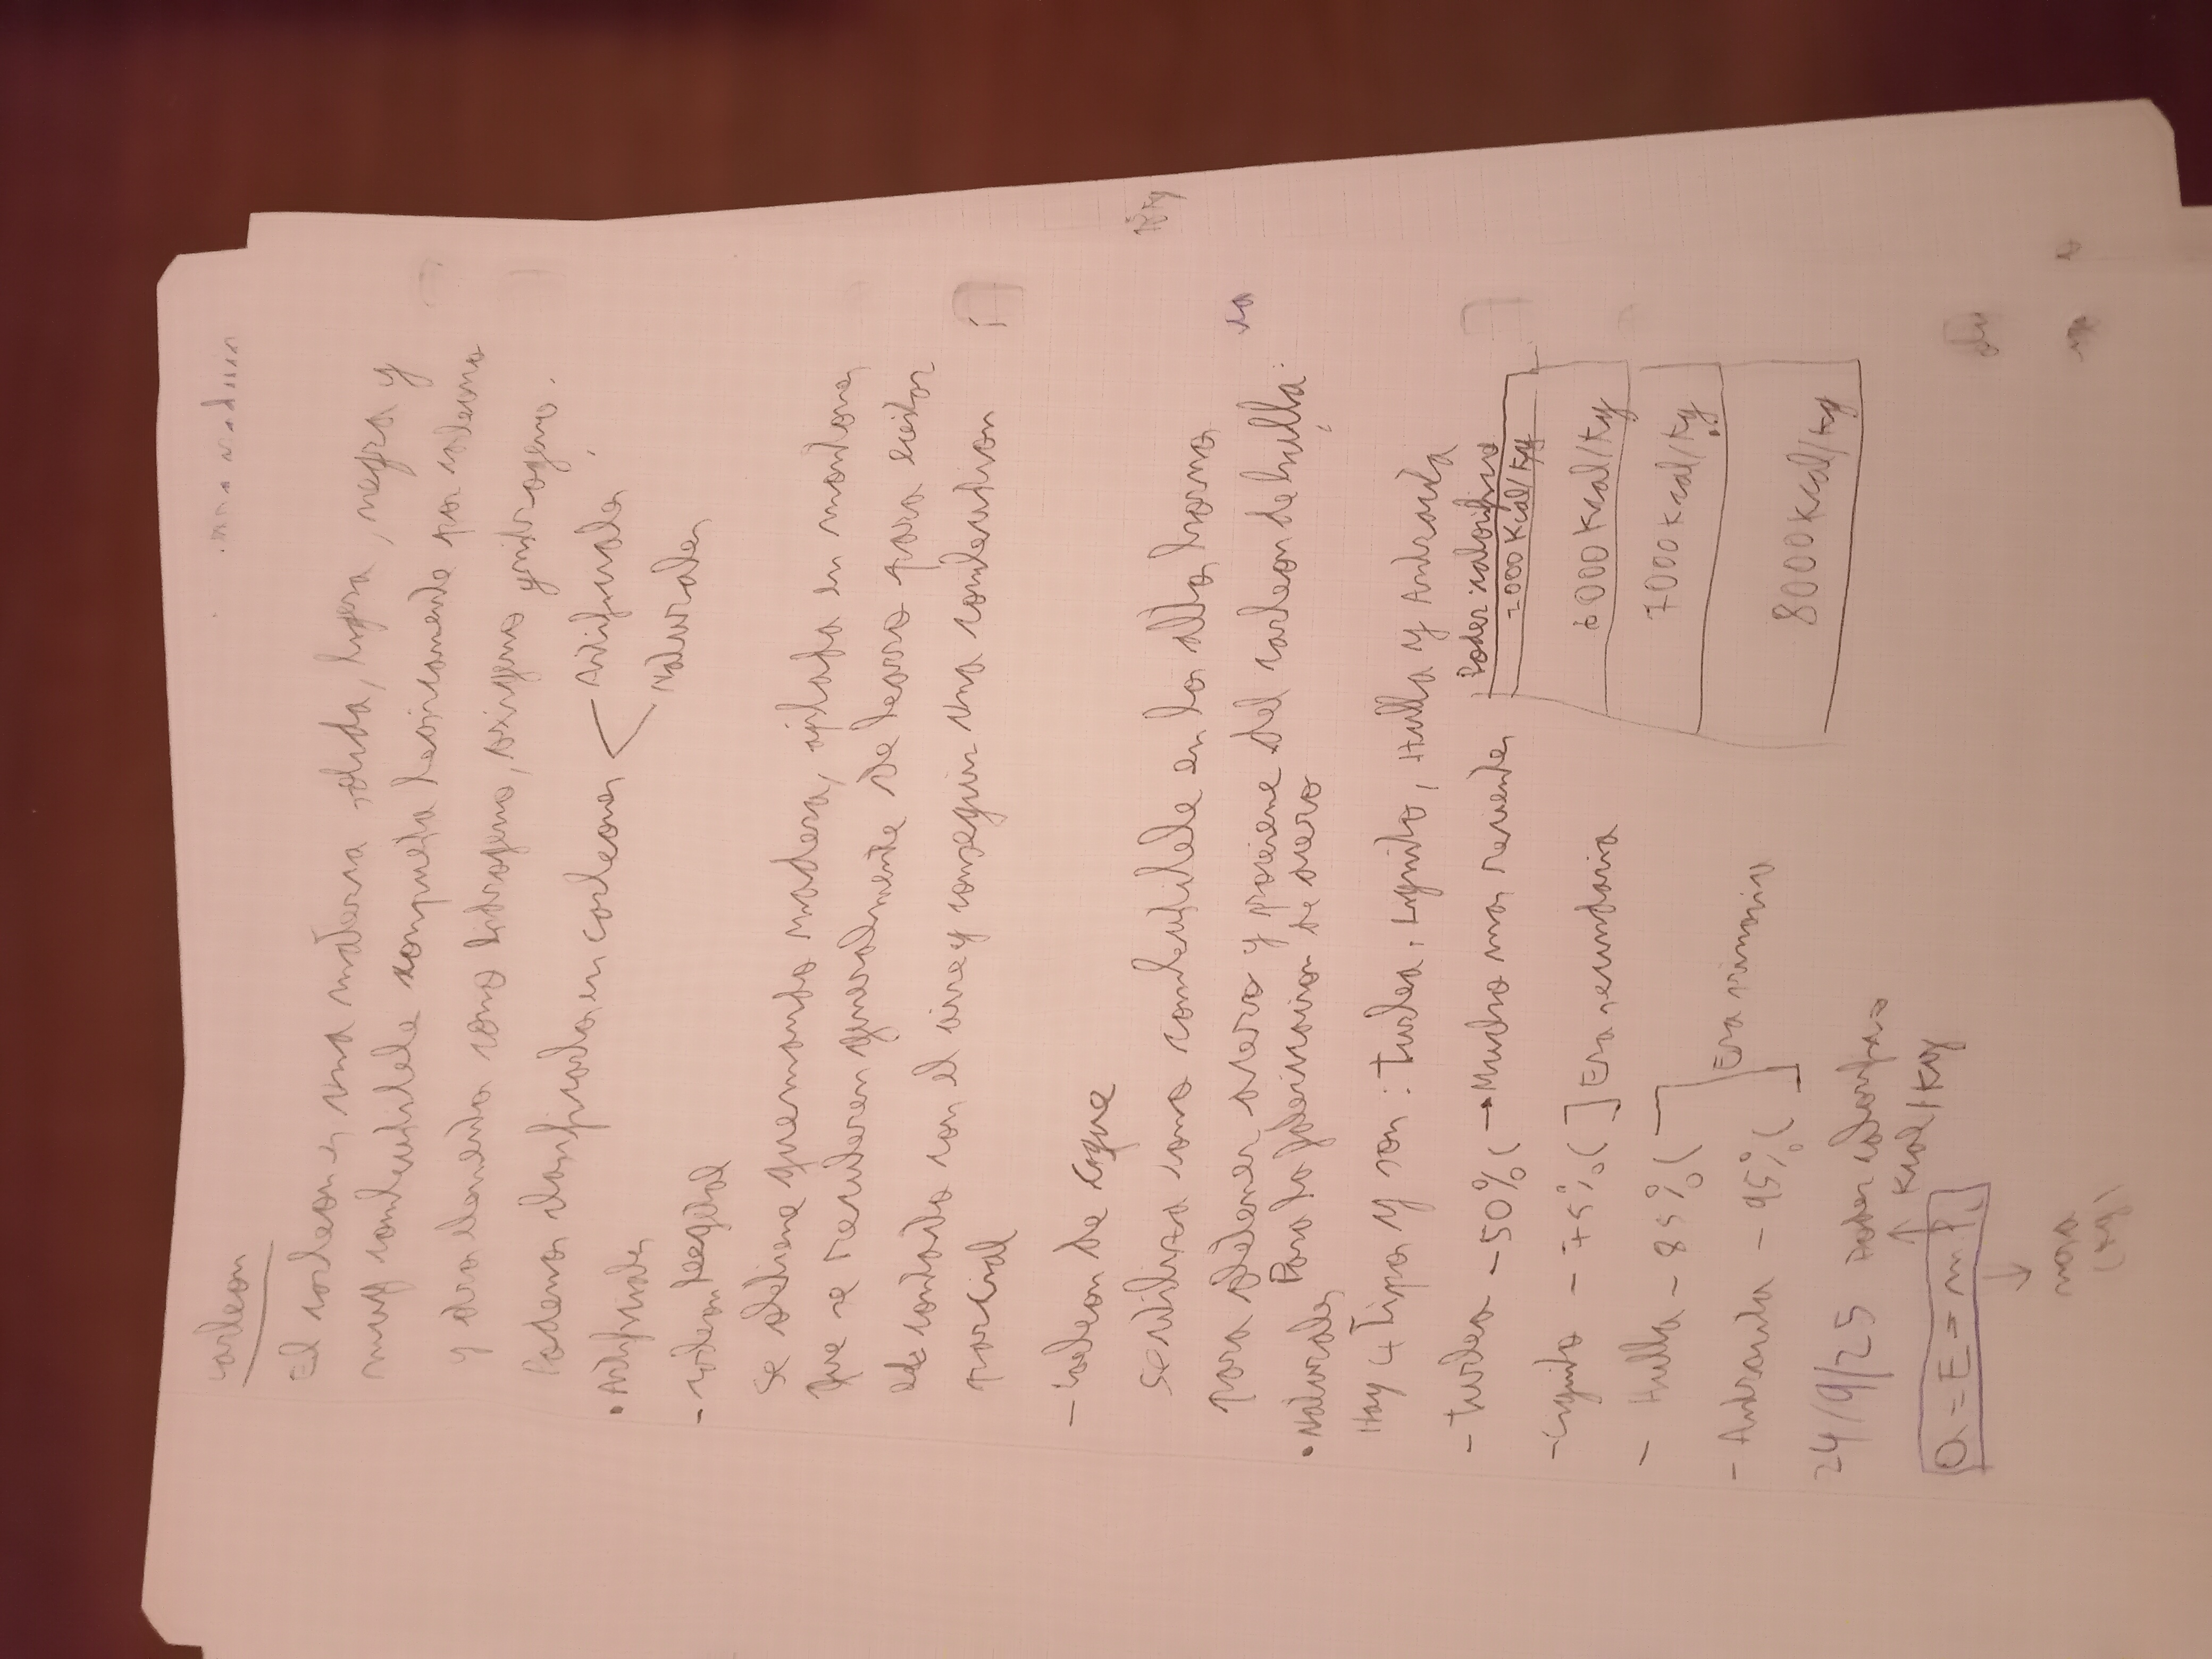 carbon
El carbon es una materia solida, ligera, negra y
muy combustible compuesta basicamente por carbono
y otros elementos como hidrogeno, oxigeno y nitrogeno.
Podemos clasificarlos en carbones < Artificiales
Naturales
• Artificiales
- carbon vegetal
se obtiene quemando madera, apilada en montones
que se recubren generalmente de barro para evitar
el contacto con el aire y conseguir una combustion
parcial
- carbon de coque
se utiliza como combustible en los altos hornos
para obtener acero y proviene del carbon de hulla.
Para la fabricacion de acero
• Naturales
Hay 4 tipos y son: turba, Lignito, Hulla y Antracita
- Turba - 50% C → Mucho mas recientes
Poder calorifico
2000 Kcal/Kg
- Lignito - 75% C ] Era secundaria
6000 Kcal/Kg
- Hulla - 85% C
7000 Kcal/Kg
- Antracita - 95% C ] Era primaria
8000 Kcal/Kg
24/9/25 Poder calorifico
↑ Kcal/Kg
Q = E = m · P
↓
masa
(Kg)